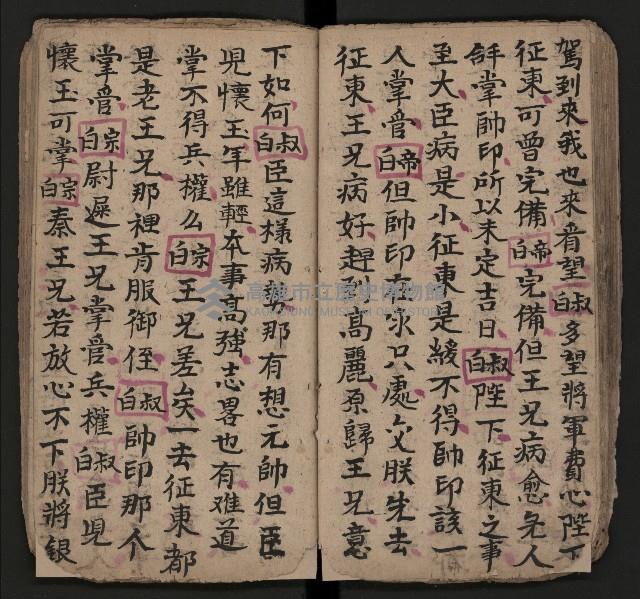 駕到來我也來看望白叔多望將軍費心陛下
征東可曾完備白帝完備但王兄病愈无人
掌帥印所以未定吉日白叔陛下征東之事
至大臣病是小征東是緩不得帥印該一
人掌管白帝但帥印在求只處交朕先去
征東王兄病好趕到高麗原歸王兄意
下如何白叔臣這樣病勢那有想元帥但臣
兒懷玉年雖輕本事高強志畧也有难道
掌不得兵權么白宗王兄差矣一去征東都
是老王兄那裡肯服御侄白叔帥印那个
掌管白宗尉遲王兄掌管兵權白叔臣兒
懷玉可掌白宗秦王兄若放心不下朕將銀
高雄市立歷史博物館
KAOHSIUNG MUSEUM OF HISTORY